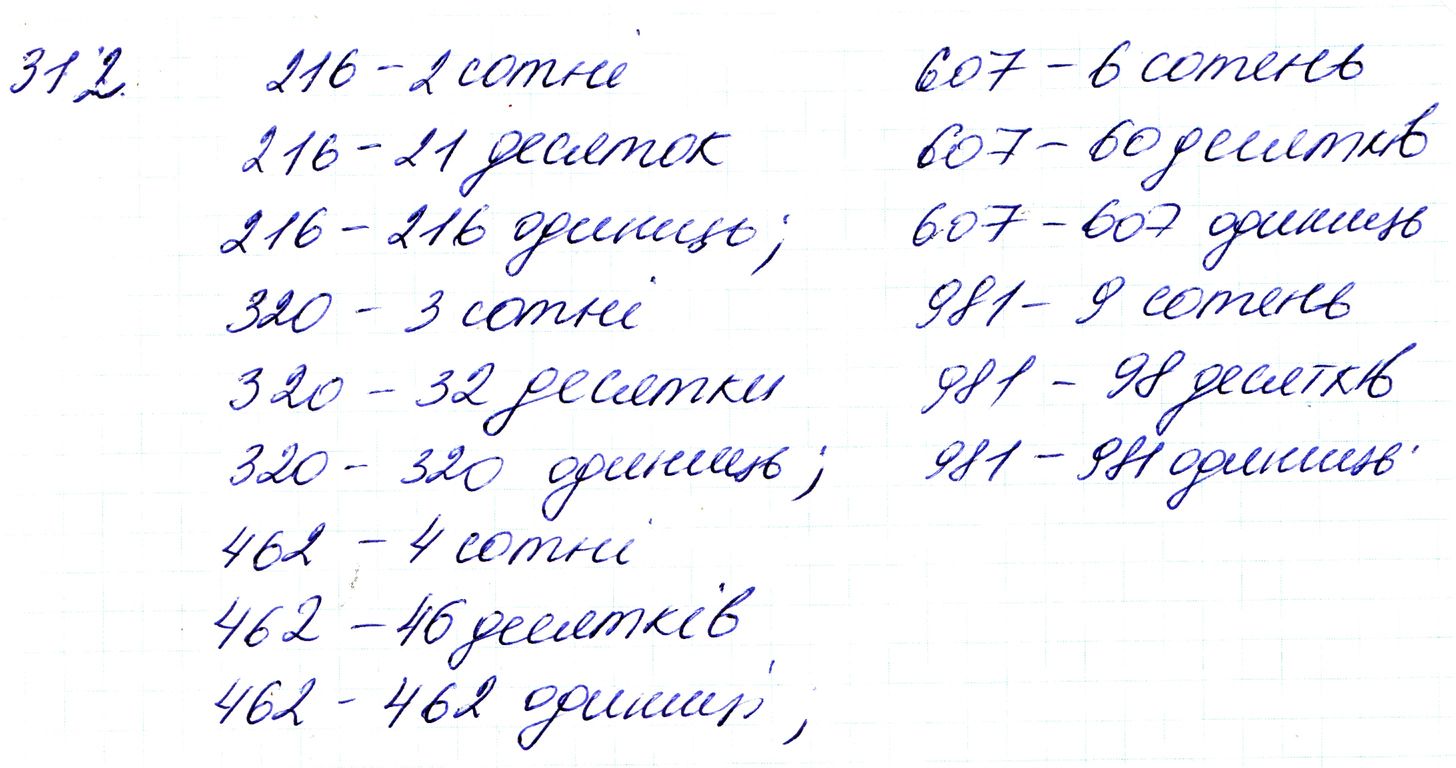 312.
216 - 2 сотні
216 - 21 десяток
216 - 216 одиниць;
320 - 3 сотні
320 - 32 десятки
320 - 320 одиниць;
462 - 4 сотні
462 - 46 десятків
462 - 462 одиниці;
607 - 6 сотень
607 - 60 десятків
607 - 607 одиниць
981 - 9 сотень
981 - 98 десятків
981 - 981 одиниць.